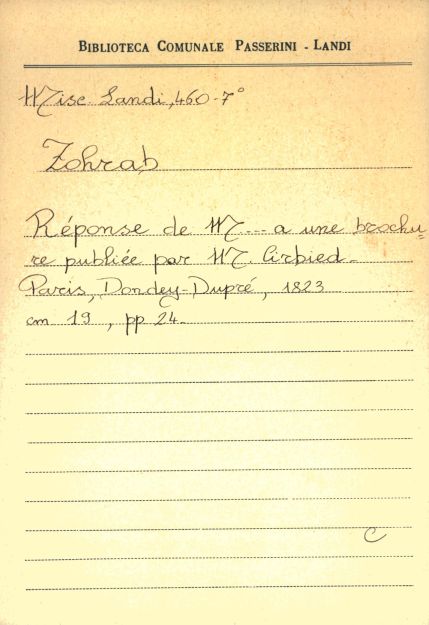 BIBLIOTECA COMUNALE PASSERINI - LANDI
Misc. Landi, 460-7°
Zohrab
Réponse de M--- a une brochu=
re publiée par M. Cirbied -
Paris, Dondey-Dupré, 1823
cm 19, pp 24-
C